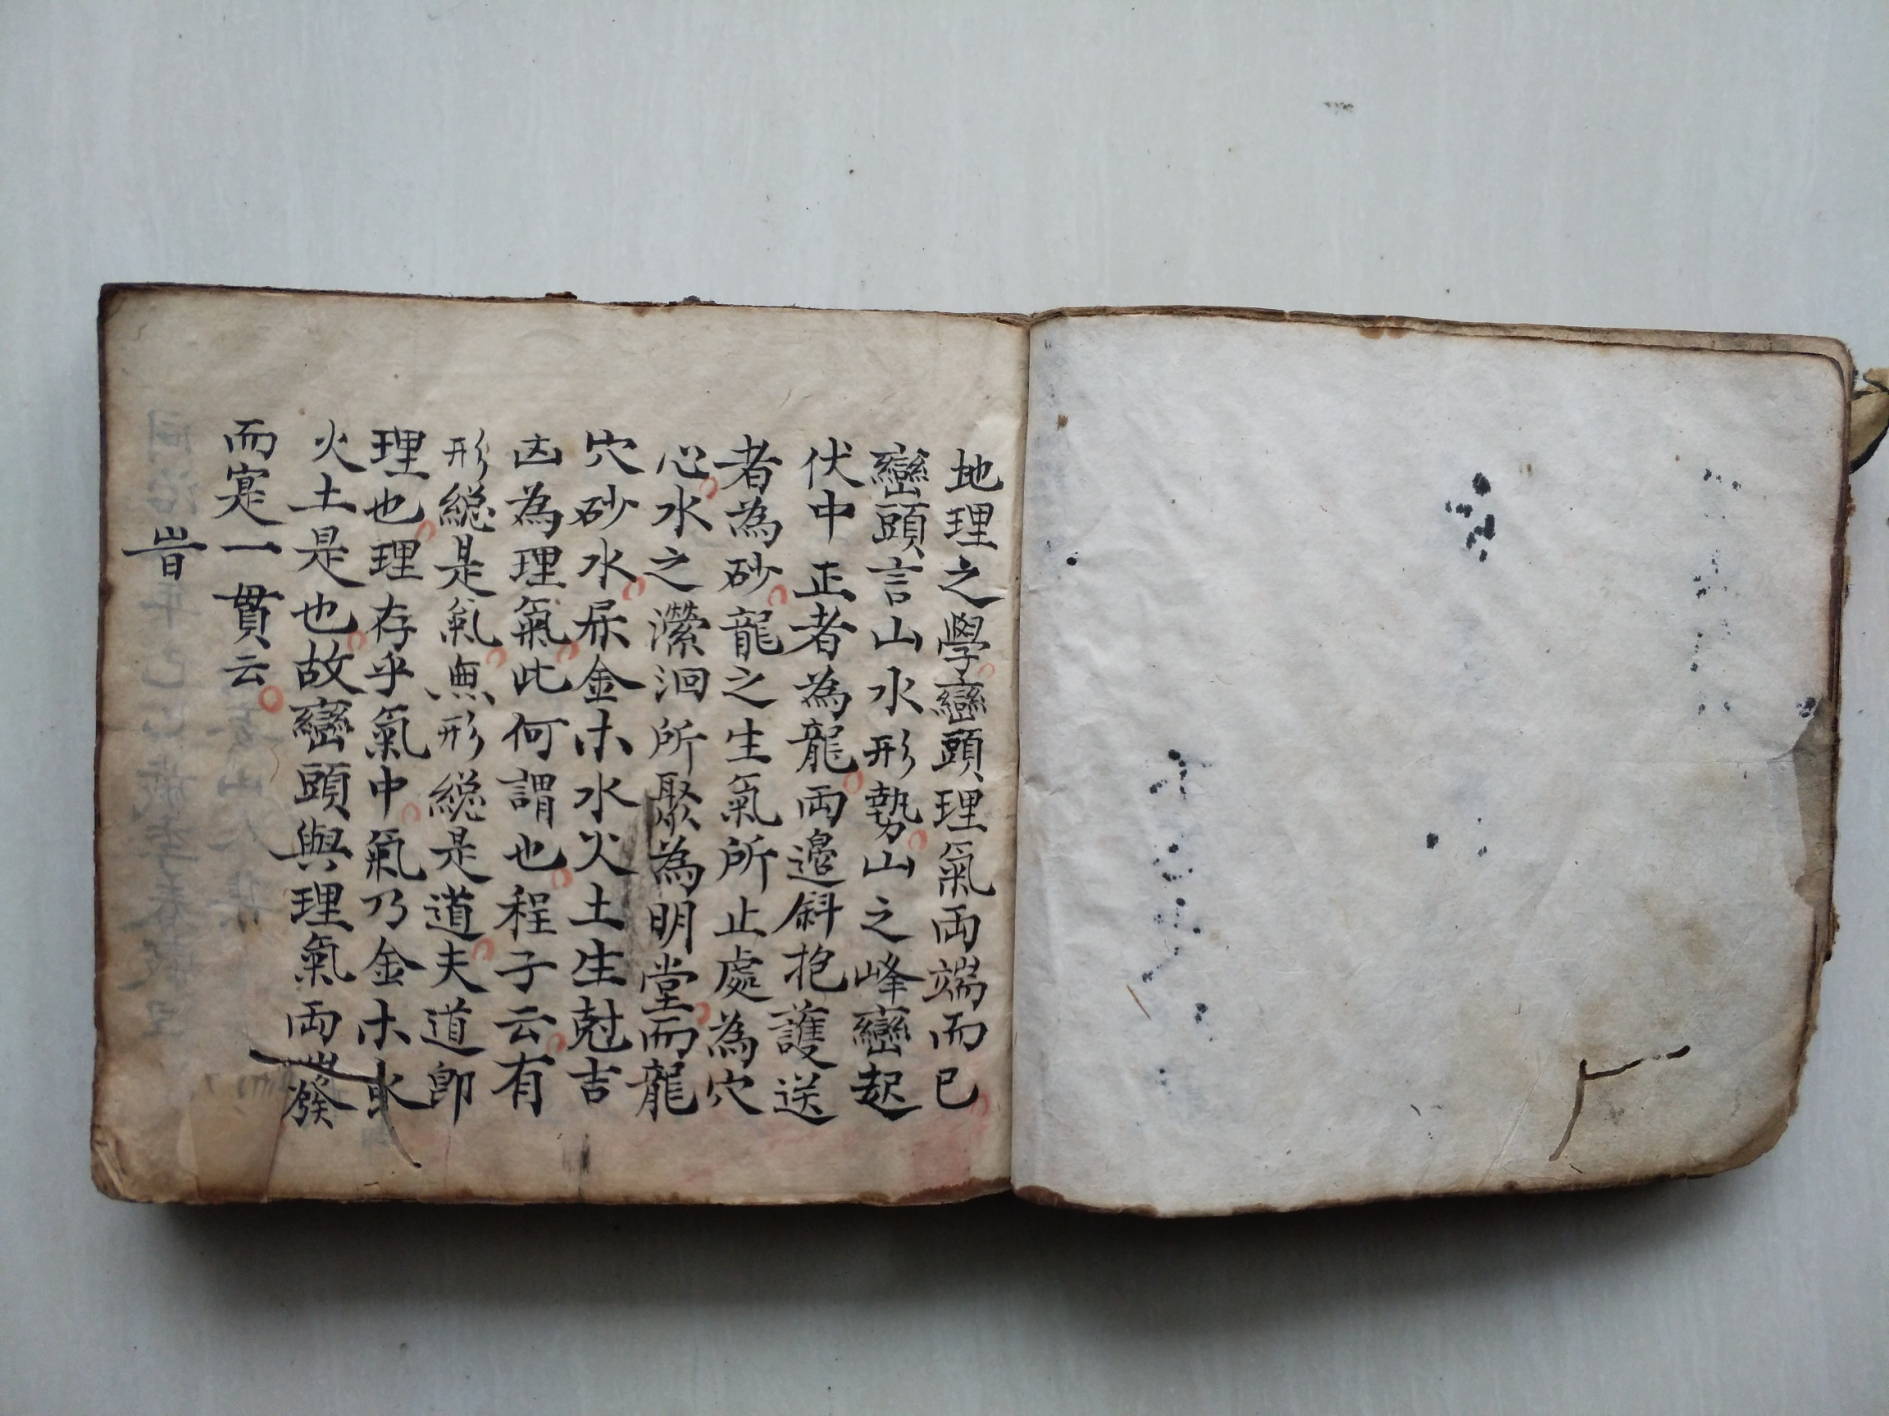 地理之學巒頭理氣両端而已
巒頭言山水形勢山之峰巒起
伏中正者為龍両邉斜抱護送
者為砂龍之生氣所止處為穴
心水之瀠洄所聚為明堂而龍
穴砂水屎金木水火土生尅吉
凶為理氣此何謂也程子云有
形緫是氣無形緫是道夫道即
理也理存乎氣中氣乃金木水
火土是也故巒頭與理氣両發
而寔一貫云
旹